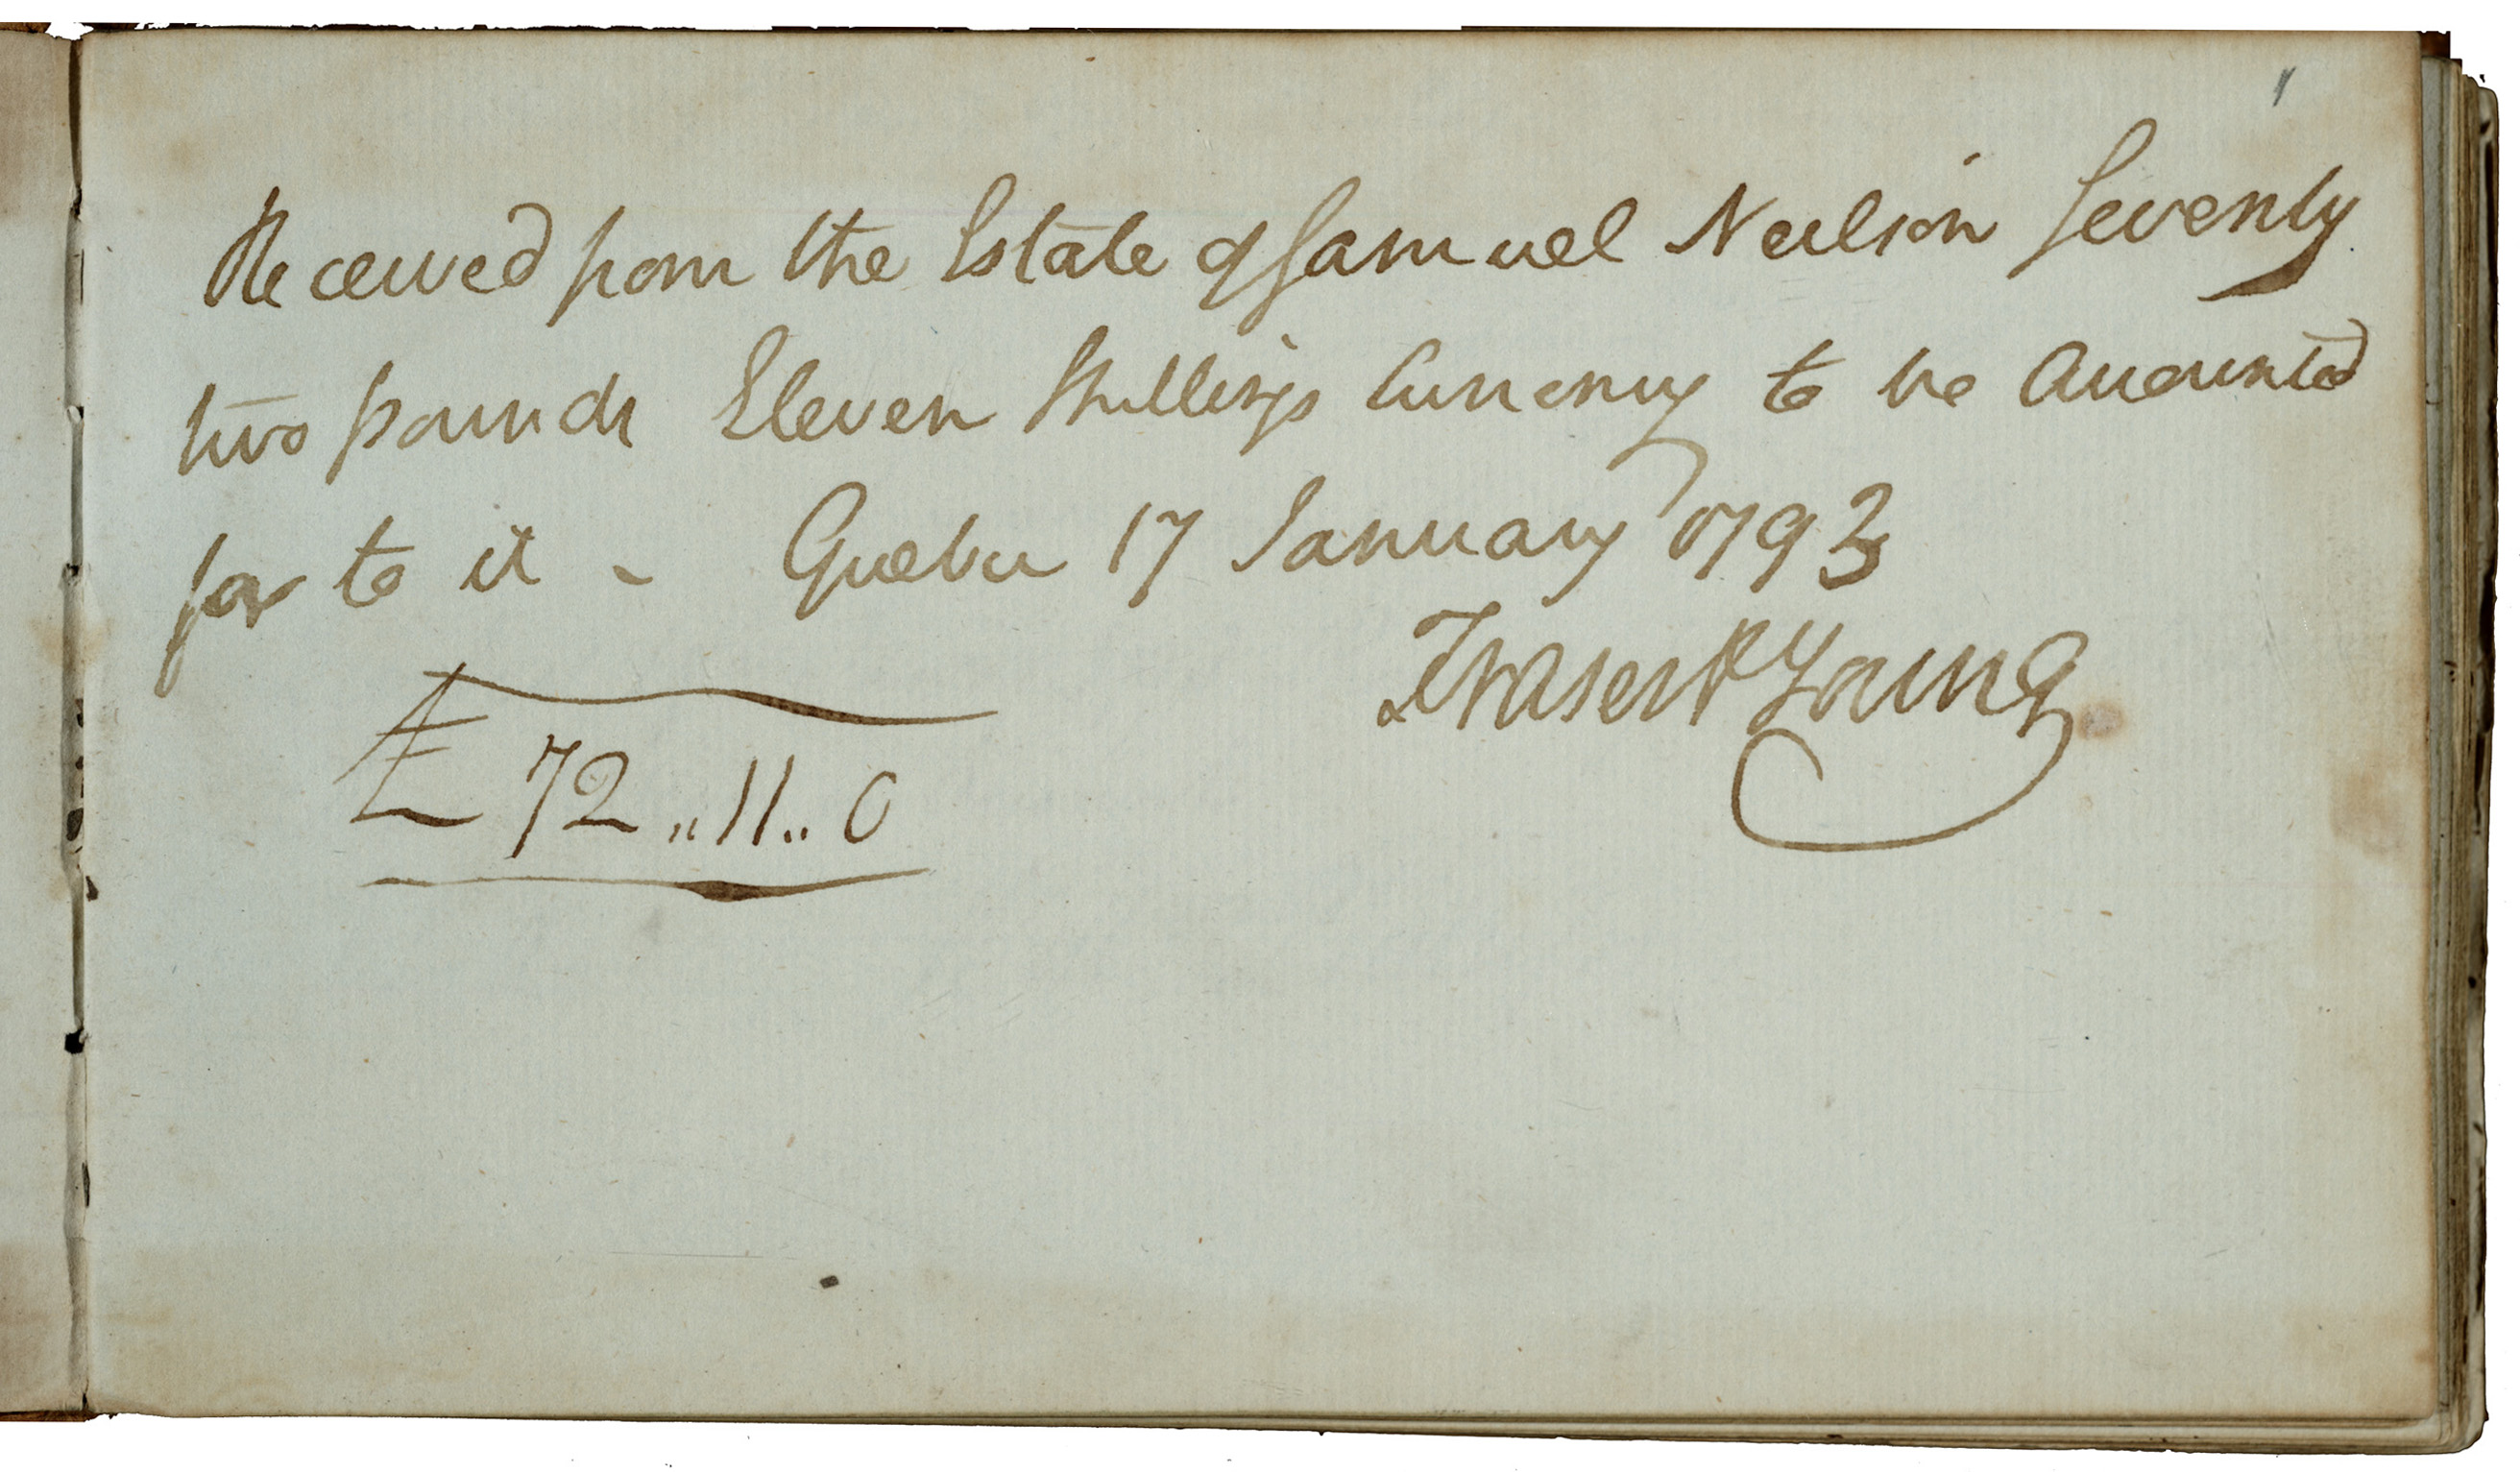 Received from the Estate of Samuel Neilson Seventy
two pounds Eleven Shillings Currency to be Accounted
for to it - Quebec 17 January 1793
Fraser & Young
£ 72 ,, 11 .. 0